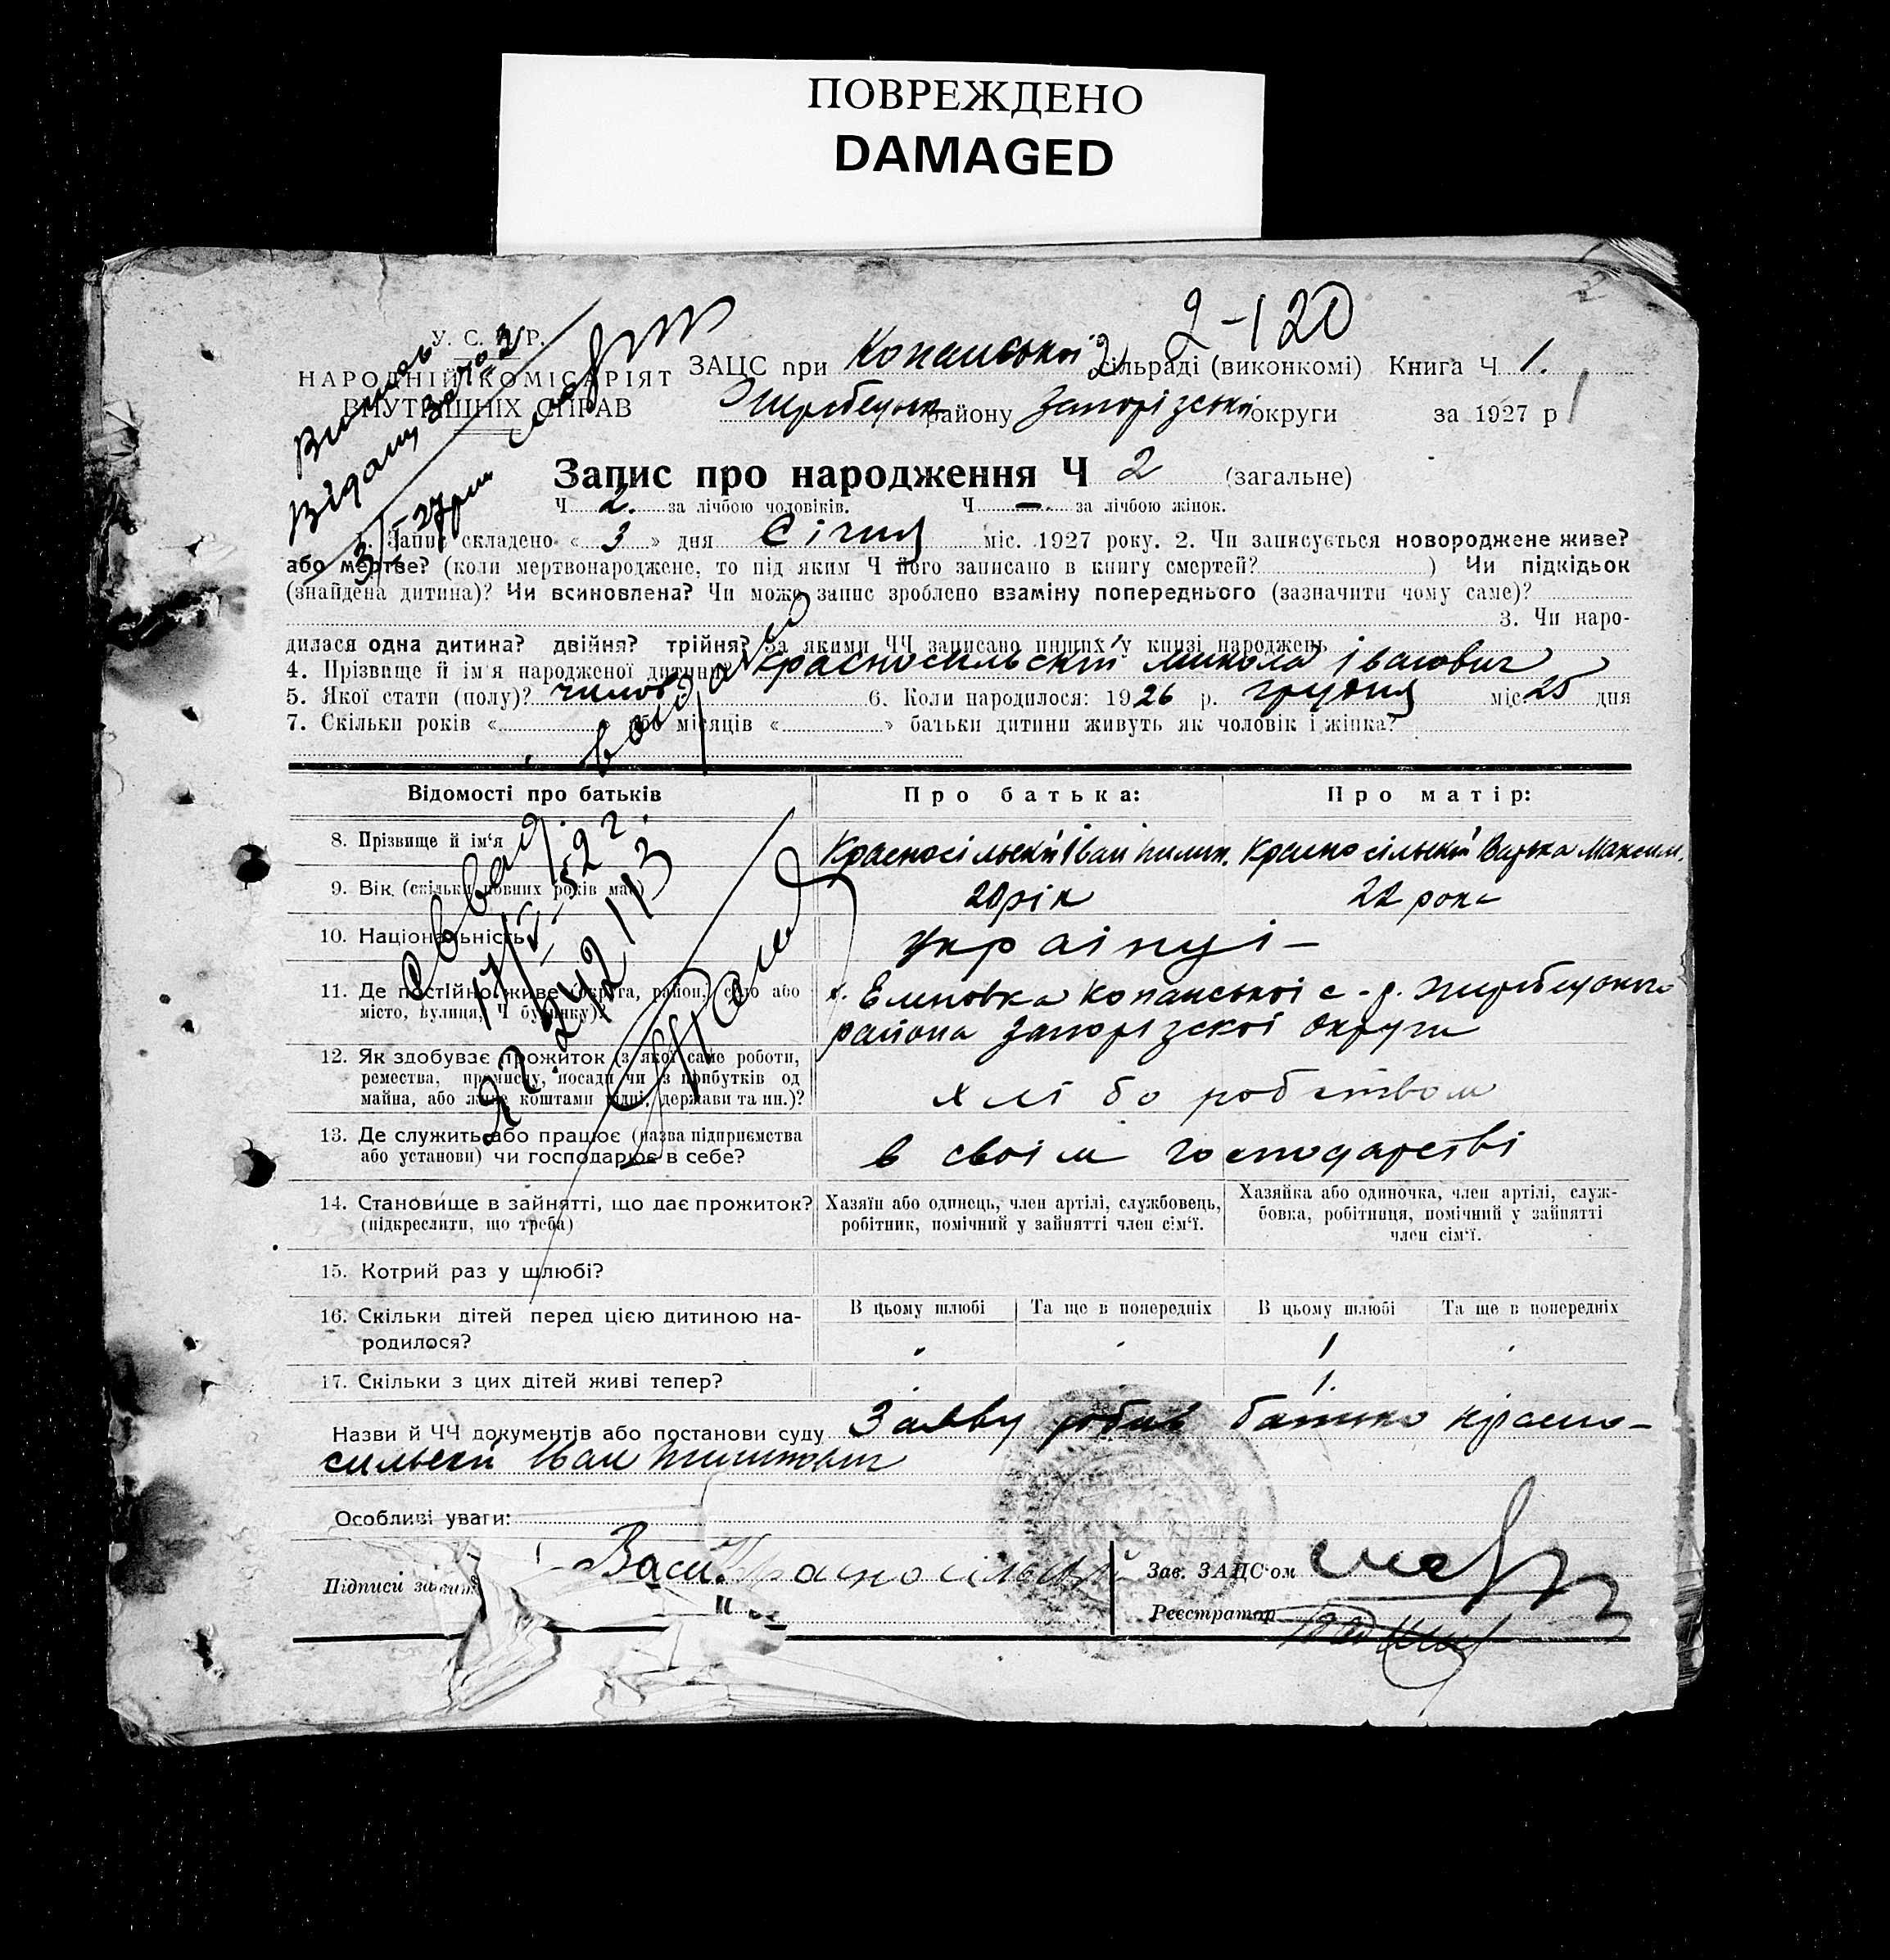 ПОВРЕЖДЕНО
DAMAGED
2-120
У. С. Р. Р.
НАРОДНІЙ КОМІСАРІЯТ
ВНУТРІШНІХ СПРАВ
ЗАЦС при Копанської 2 сільраді (виконкомі) Книга Ч 1.
Жеребецьк району Запорізської округи за 1927 р
Запис про народження Ч 2 (загальне)
Ч 2. за лічбою чоловіків. Ч — за лічбою жінок.
1. Запис складено « 3 » дня Січня міс. 1927 року. 2. Чи записується новороджене живе?
або мертве? (коли мертвонароджене, то під яким Ч його записано в книгу смертей? ) Чи підкідьок
(знайдена дитина)? Чи всиновлена? Чи може запис зроблено взаміну попереднього (зазначити чому саме)?
3. Чи наро-
дилася одна дитина? двійня? трійня? За якими ЧЧ записано инших у книзі народжень
4. Прізвище й ім'я народженої дитини? Красносильский Микола Івагович
5. Якої стати (полу)? чилов 6. Коли народилося: 1926 р. грудня міс. 25 дня
7. Скільки років « » або місяців « » батьки дитини живуть як чоловік і жінка?
Відомості про батьків Про батька: Про матір:
8. Прізвище й ім'я Красносільский Іван Пилип. Красно сільский Варька Максим.
9. Вік (скільки повних років має) 20 рік 22 рока
10. Національність українці —
11. Де постійно живе (округа, район, село або місто, вулиця, Ч будинку)?
х. Копанської с-р. Жеребецького
района Запорізскої округи
12. Як здобуває прожиток (з якої саме роботи,
ремества, промислу, посади чи з прибутків од
майна, або живе коштами рідні, держави та ин.)?
хлібо робством
13. Де служить або працює (назва підприємства
або установи) чи господарює в себе?
в своїм господарстві
14. Становище в зайнятті, що дає прожиток?
(підкреслити, що треба)
Хазяїн або одинець, член артілі, службовець,
робітник, помічний у зайнятті член сім'ї.
Хазяйка або одиночка, член артілі, служ-
бовка, робітниця, помічний у зайнятті
член сім'ї.
15. Котрий раз у шлюбі?
16. Скільки дітей перед цією дитиною на-
родилося?
В цьому шлюбі Та ще в попередніх В цьому шлюбі Та ще в попередніх
1
17. Скільки з цих дітей живі тепер? 1.
Назви й ЧЧ документів або постанови суду Заяву робив батько Красно-
сильский Іван
Особливі уваги:
Підписи Красносільск
Зав. ЗАЦС'ом
Реєстратор